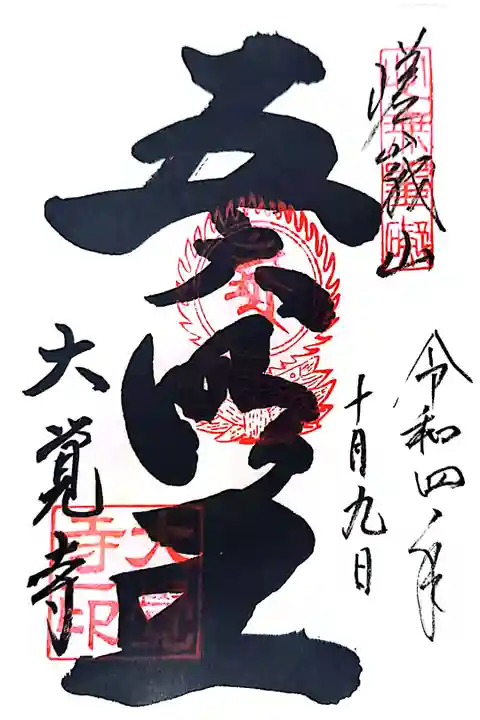 嵯峨山
令和四年
十月九日
五大明王
大覚寺
大覚寺印